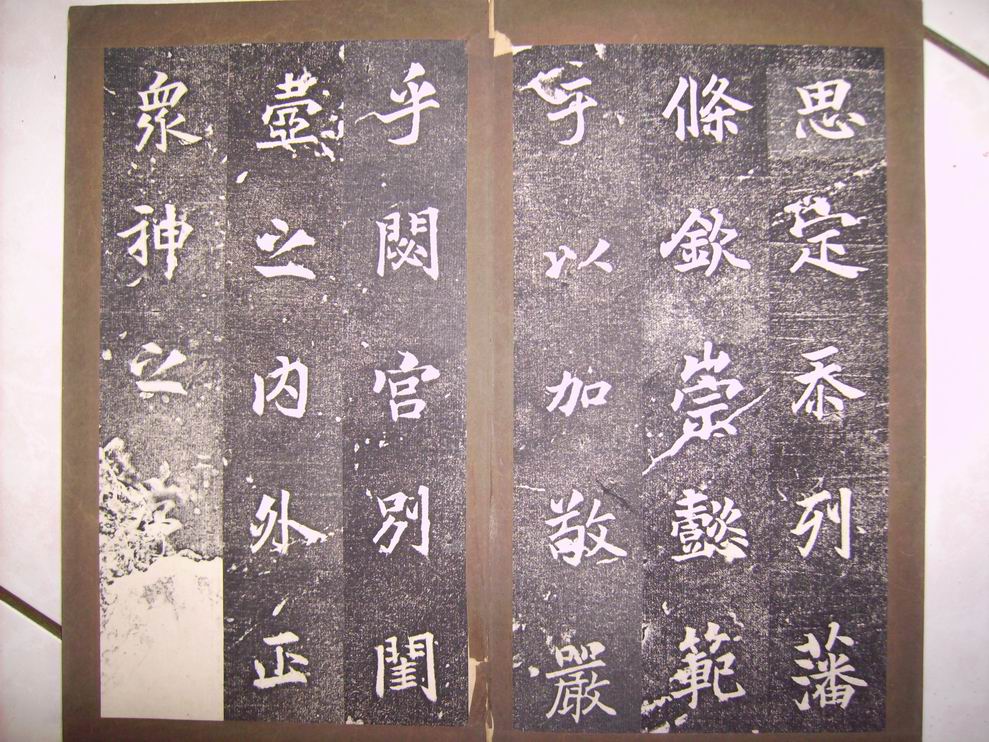 思定忝列藩
條欽崇懿範
以加敬嚴
乎閟官別閨
壼之内外正
衆神之